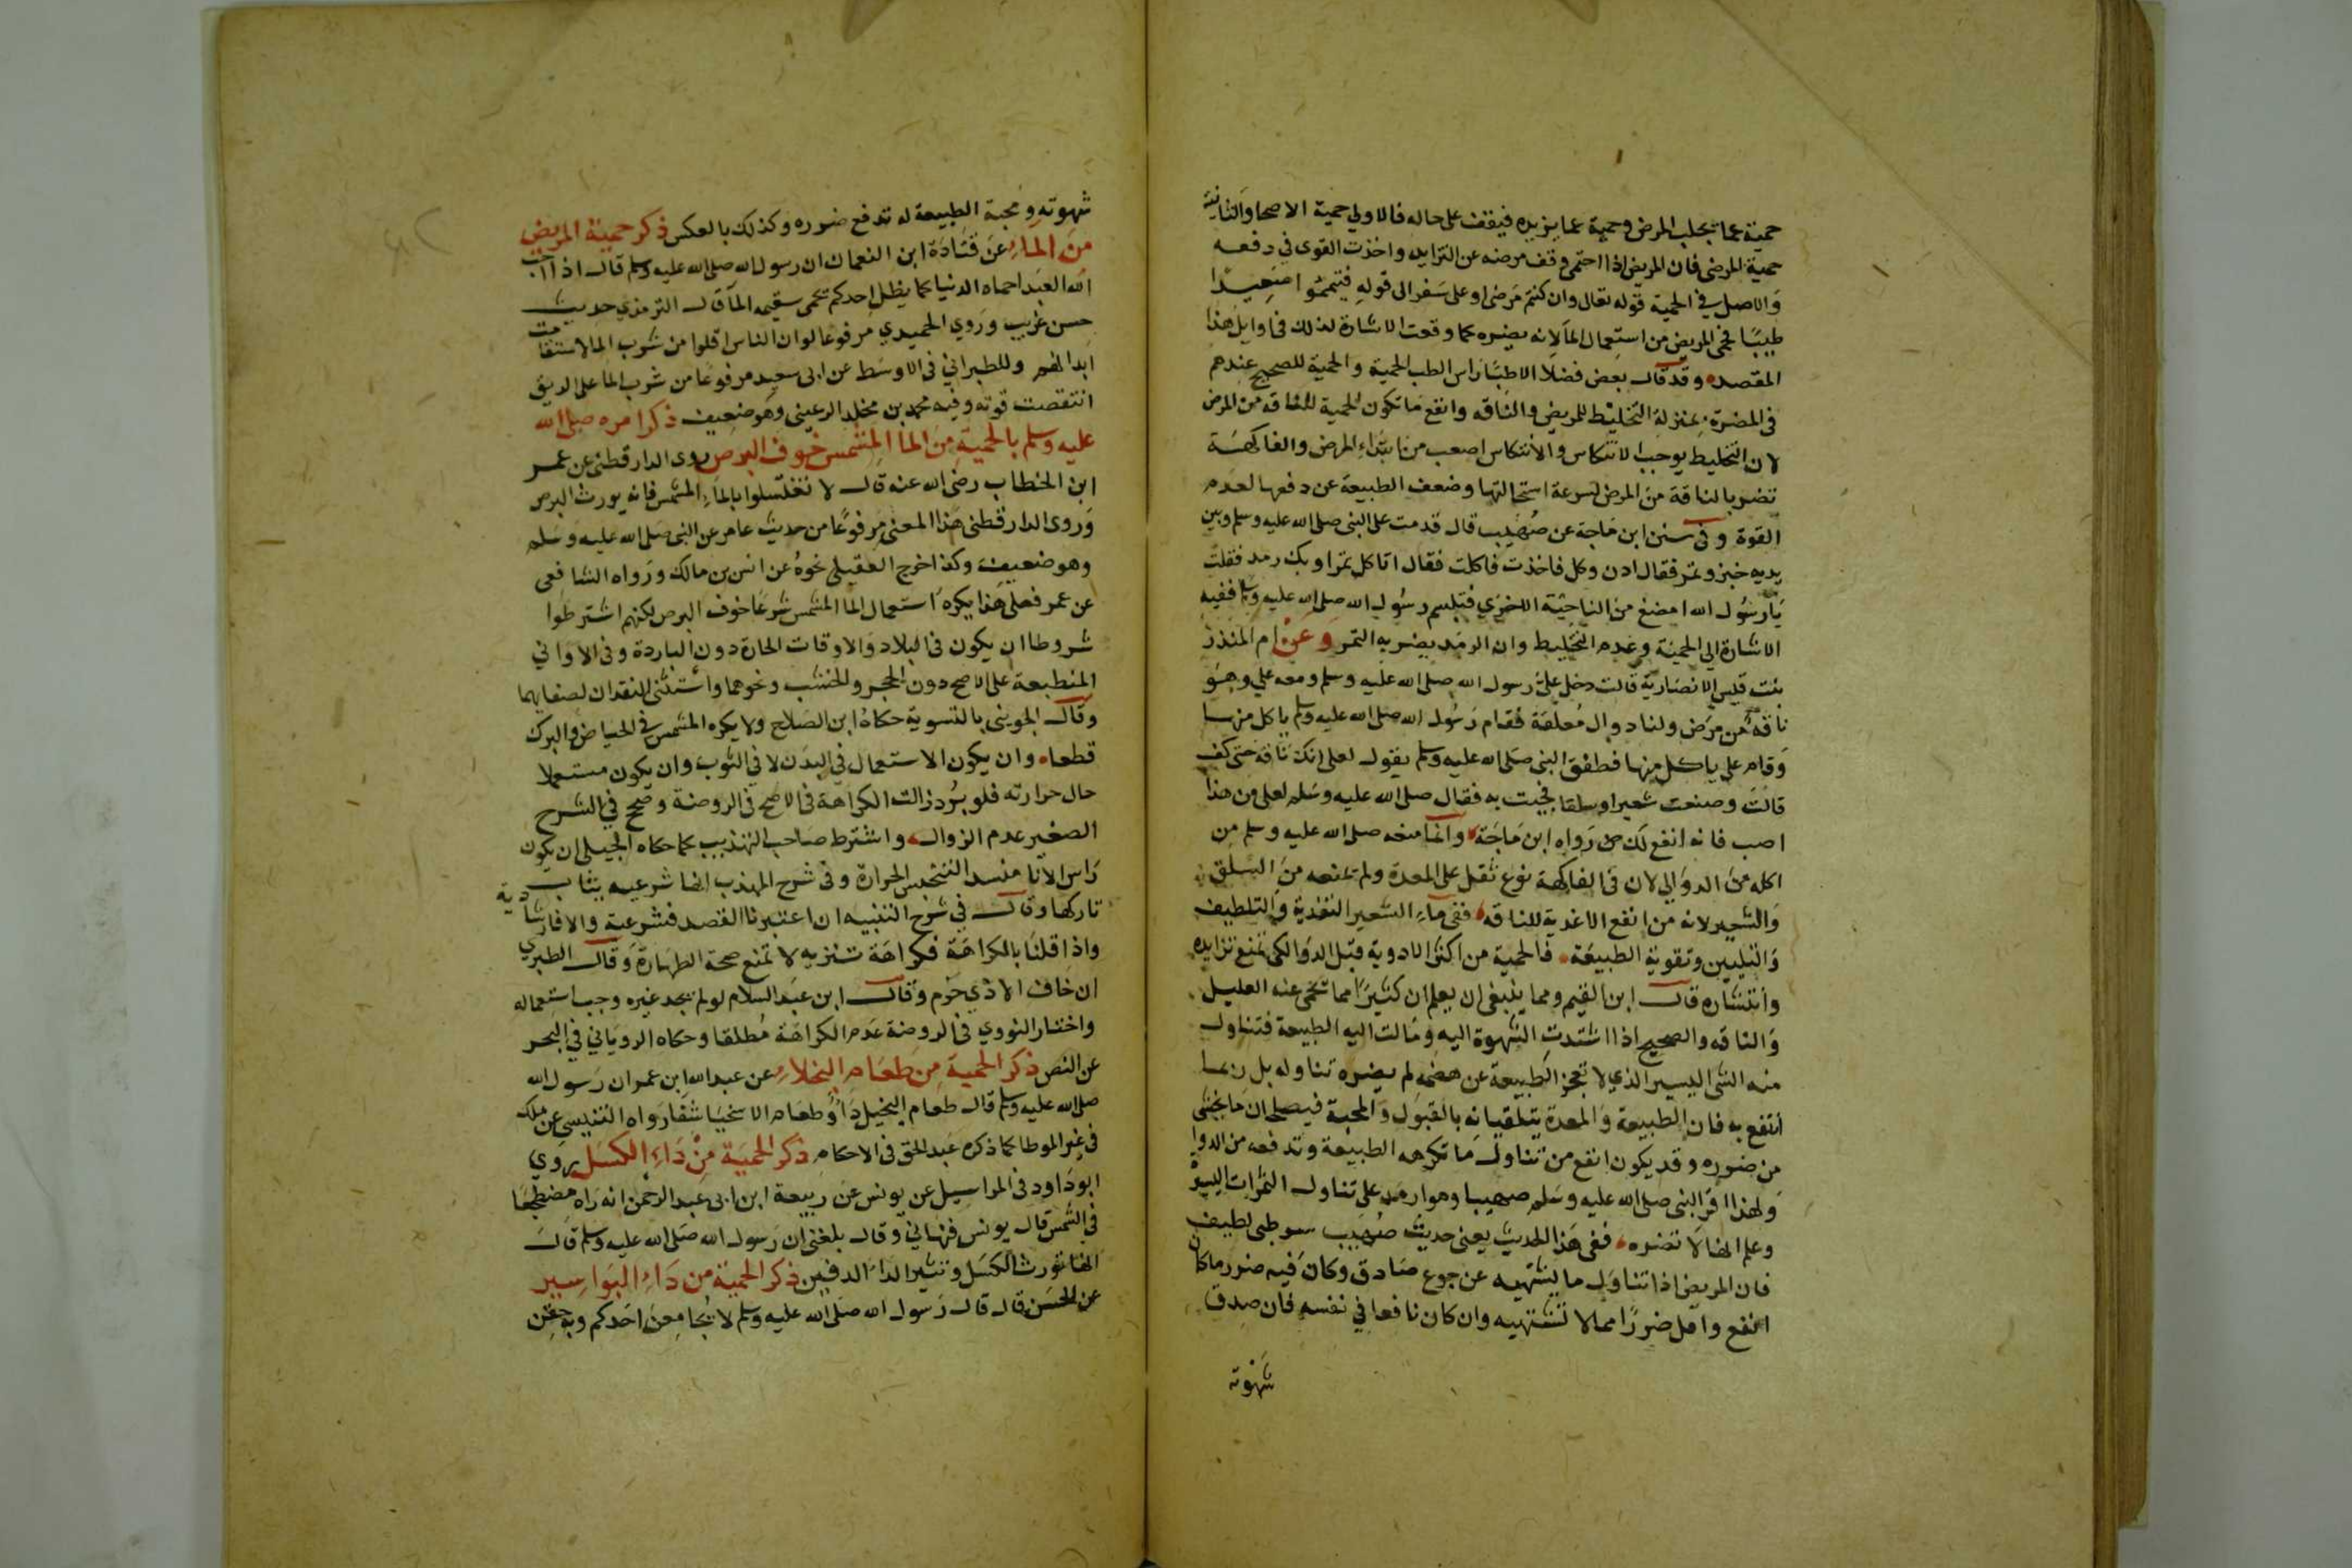 حمية عما يجلب المرض وحمية عما يزيده فيقف على حاله فالاولي حمية الاصحا والثانية
حمية المرضى فان المريض اذا احتمى وقف مرضه عن التزايد واخذت القوى في دفعه
والاصل في الحمية قوله تعالى وان كنتم مرضى او على سفر الى قوله فتيمموا صعيدا
طيبا فحمى المريض من استعمال الما لانه يضره كما وقعت الاشارة لذلك في اوايل هذا
المقصد وقد قال بعض فضلا الاطبا راس الطب الحمية والحمية للصحيح عندهم
في المضرة بمنزلة التخليط للمريض والناقه وانفع ما تكون الحمية للناقه من المرض
لان التخليط يوجب الانتكاس والانتكاس اصعب من ابتداء المرض والفاكهة
تضر بالناقة من المرض لسرعة استحالتها وضعف الطبيعة عن دفعها لعدم
القوة وفي سنن ابن ماجة عن صهيب قال قدمت على النبى صلى الله عليه وسلم وبين
يديه خبز وتمر فقال ادن وكل فاخذت فاكلت فقال اتاكل تمرا وبك رمد فقلت
يارسول الله امضغ من الناحية الاخرى فتبسم رسول الله صلى الله عليه وسلم ففيه
الاشارة الى الحمية وعدم التخليط وان الرمد يضر به التمر وعن ام المنذر
بنت قيس الانصارية قالت دخل علي رسول الله صلى الله عليه وسلم ومعه علي وهو
ناقه من مرض ولنا دوال معلقة فقام رسول الله صلى الله عليه وسلم ياكل منها
وقام علي ياكل منها فطفق النبى صلى الله عليه وسلم يقول لعلى انك ناقة حتى كف
قالت وصنعت شعيرا وسلقا فجيت به فقال صلى الله عليه وسلم لعلى من هذا
اصب فانه انفع لك رواه ابن ماجة وانما منعه صلى الله عليه وسلم من
اكله من الدوالي لان في الفاكهة نوع ثقل على المعدة ولم يمنعه من السلق
والشعير لانه من انفع الاغدية للناقه ففى ماء الشعير التغدية والتلطيف
والتليين وتقوية الطبيعة فالحمية من اكثر الادوية قبل الدوا لكى تمنع تزايده
وانتشاره قال ابن القيم ومما ينبغى ان يعلم ان كثيرا مما تحمى عنه العليل
والناقه والصحيح اذا اشتدت الشهوة اليه ومالت اليه الطبيعة فتناول
منه الشى اليسير الذي لا تعجز الطبيعة عن هضمه لم يضره تناوله بل ربما
انتفع به فان الطبيعة والمعدة يتلقيانه بالقبول والمحبة فيصلحان ما يخشى
من ضرره وقد يكون انفع من تناول ما تكرهه الطبيعة وتدفعه من الدوا
ولهذا اقر النبى صلى الله عليه وسلم صهيبا وهو ارمد على تناول التمرات اليسيرة
وعلم انها لا تضره ففى هذا الحديث يعنى حديث صهيب سر طبى لطيف
فان المريض اذا تناول ما يشتهيه عن جوع صادق وكان فيه ضرر ما كان
انفع واقل ضررا مما لا تشتهيه وان كان نافعا في نفسه فان صدق
شهوته
شهوته ومحبة الطبيعة له تدفع ضرره وكذلك بالعكس ذكر حمية المريض
من الماء عن قتادة ابن النعمان ان رسول الله صلى الله عليه وسلم قال اذا احب
الله العبد احماه الدنيا كما يظل احدكم يحمى سقيمه الما قال الترمذي حديث
حسن غريب وروي الحميدي مرفوعا لو ان الناس اقلوا من شرب الما لاستقامت
ابدانهم وللطبراني في الاوسط عن ابى سعيد مرفوعا من شرب الما على الريق
انتقصت قوته وفيه محمد بن مخلد الرعيني وهو ضعيف ذكر امره صلى الله
عليه وسلم بالحمية من الما المشمس خوف البرص روى الدارقطنى عن عمر
ابن الخطاب رضى الله عنه قال لا تغتسلوا بالماء المشمس فانه يورث البرص
وروى الدارقطنى هذا المعنى مرفوعا من حديث عامر عن النبى صلى الله عليه وسلم
وهو ضعيف وكذا خرج العقيلي نحوه عن انس بن مالك ورواه الشافعى
عن عمر فعلى هذا يكره استعمال الما المشمس شرعا خوف البرص لكنهم اشترطوا
شروطا ان يكون في البلاد والاوقات الحارة دون الباردة وفي الاواني
المنطبعة على الاصح دون الحجر والخشب ونحوهما واستثنى النقدان لصفايهما
وقال الجوينى بالتسوية حكاه ابن الصلاح ولا يكره المشمس في الحياض والبرك
قطعا وان يكون الاستعمال في البدن لا في الثوب وان يكون مستعملا
حال حرارته فلو برد زالت الكراهة في الاصح في الروضة وصحح في الشرح
الصغير عدم الزوال واشترط صاحب التهذيب كما حكاه الجيلى ان يكون
راس الانا منسدا لتنحبس الحرارة وفي شرح المهذب انها شرعيه يثاب
تاركها وقال في شرح التنبيه ان اعتبرنا القصد فشرعية والا فارشادية
واذا قلنا بالكراهة فكراهة تنزيه لا تمنع صحة الطهارة وقال الطبري
ان خاف الاذي حرم وقال ابن عبد السلام لو لم يجد غيره وجب استعماله
واختار النووي في الروضة عدم الكراهة مطلقا وحكاه الروياني في البحر
عن النص ذكر الحمية من طعام البخلاء عن عبد الله ابن عمر ان رسول الله
صلى الله عليه وسلم قال طعام البخيل داء وطعام الاسخيا شفا رواه التنيسي عن ملك
في غير الموطا كما ذكره عبد الحق في الاحكام ذكر الحمية من داء الكسل روي
ابو داود في المراسيل عن يونس عن ربيعة ابن ابى عبد الرحمن انه راه مضطجعا
في الشمس قال يونس فنهاني وقال بلغنى ان رسول الله صلى الله عليه وسلم قال
انها تورث الكسل وتثير الداء الدفين ذكر الحمية من داء البواسير
عن الحسن قال قال رسول الله صلى الله عليه وسلم لا يجامعن احدكم وبه حقن